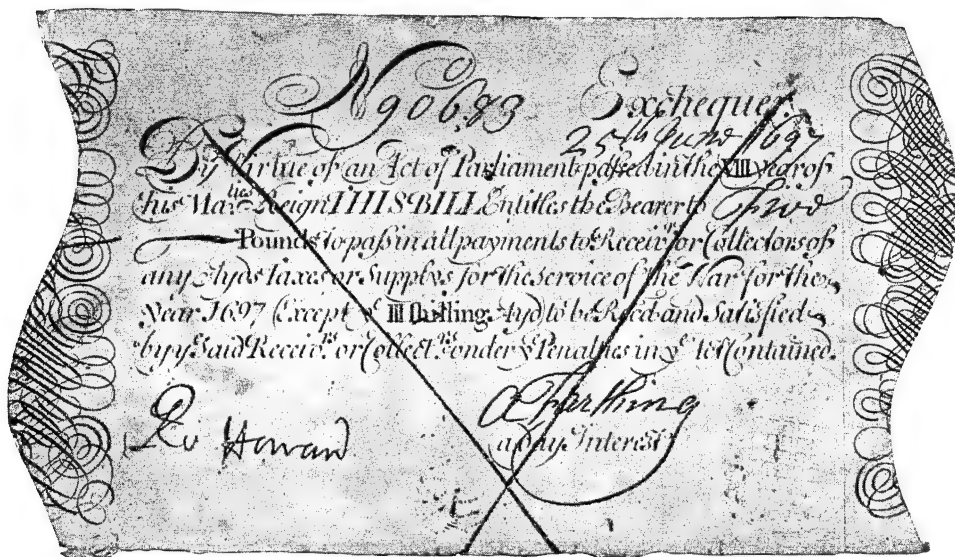 No 90683 Exchequer
25th June 1697
By Virtue of an Act of Parliament passed in the VIII year of
his Ma.ties Reign THIS BILL Entitles the Bearer to
Pounds to pass in all payments to Receiv.rs or Collectors of
any Ayds Taxes or Supplys for the Service of the War for the
Year 1697 (Except ye III Shilling Ayd) to be Recd and Satisfied
by ye Said Receiv.rs or Collect.rs under ye Penalties in ye Act Contained.
A Farthing
Ro Howard a day Interest